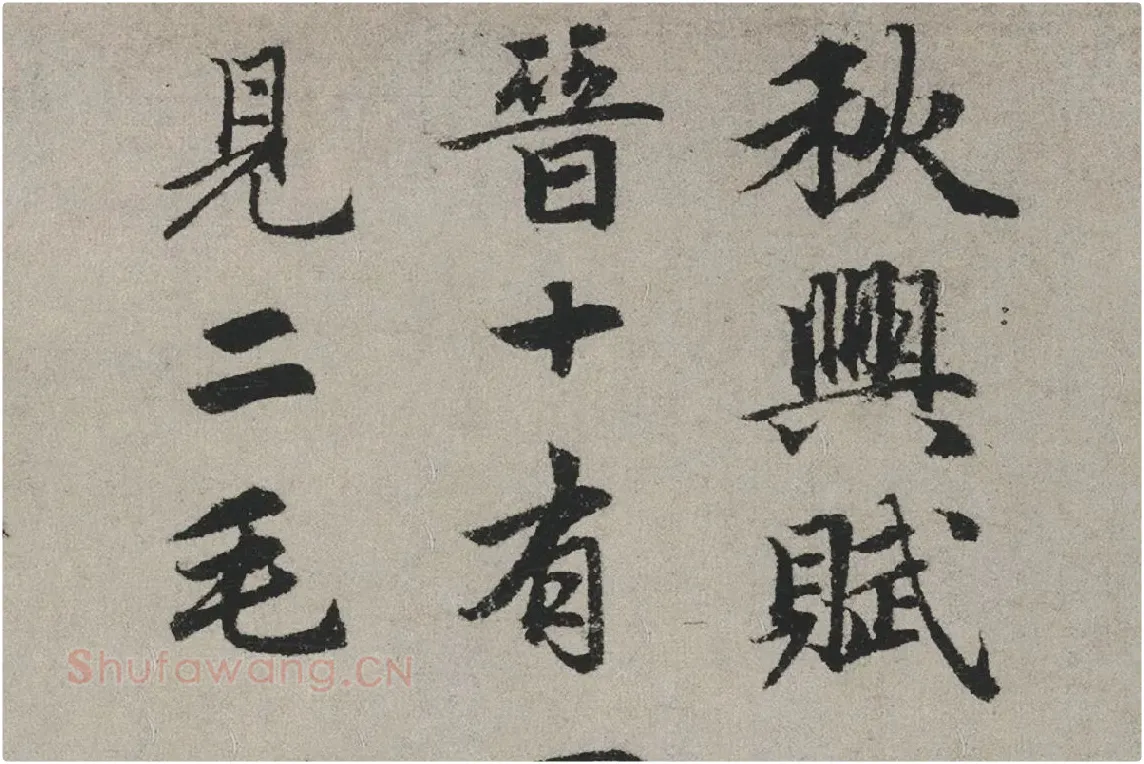 秋興賦
晉十有
見二毛
Shufawang.CN